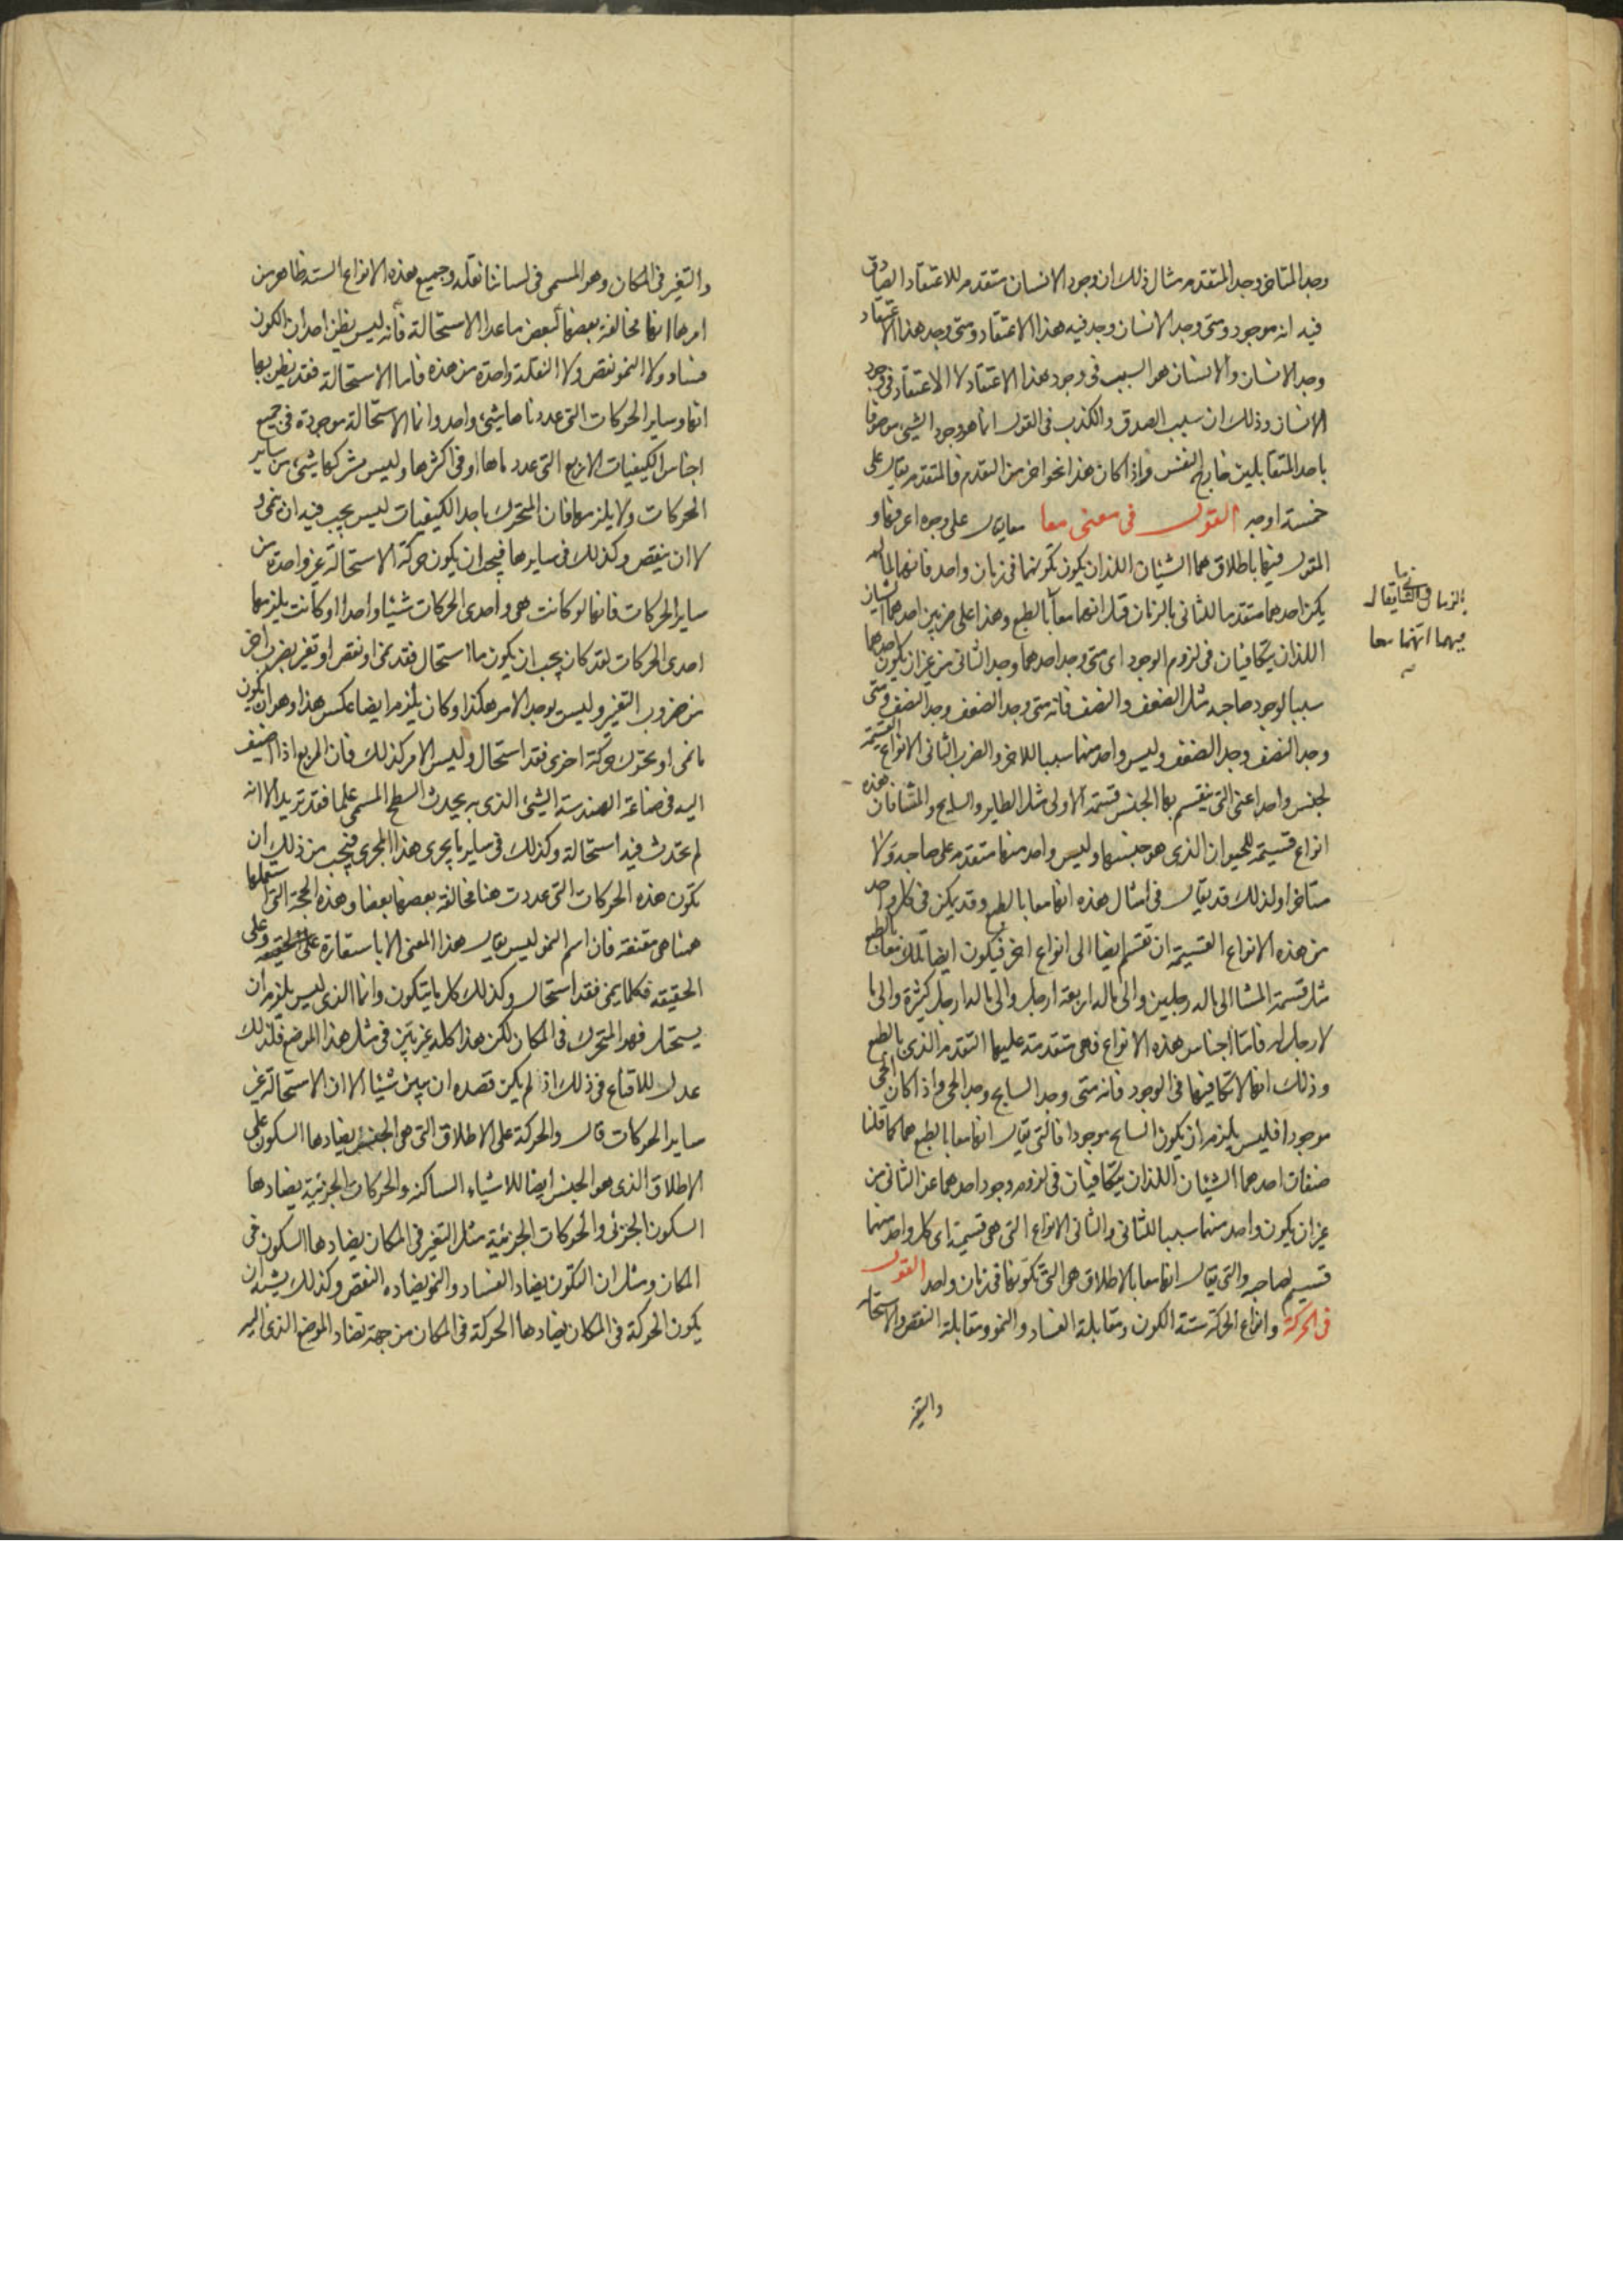 وجد المتاخر وجد المتقدم مثال ذلك ان وجود الانسان متقدم للاعتقاد الصادق
فيه انه موجود ومتى وجد الانسان وجد فيه هذا الاعتقاد ومتى وجد هذا الاعتقاد
وجد الانسان والانسان هو السبب فى وجود هذا الاعتقاد لا الاعتقاد فى وجود
الانسان وذلك ان سبب الصدق والكذب فى القول انما هو وجود الشيء موصوفا
باحد المتقابلين خارج النفس واذا كان هذا نحوا اخر من التقدم فالمتقدم يقال على
خمسة اوجه القول فى معنى معا معا يقال على وجوه اعرفها و
المقول فيها باطلاق هما الشيئان اللذان يكون تكونهما فى زمان واحد فانهما لما لم
يكن احدهما متقدما للثانى بالزمان قيل انهما معا بالطبع وهذا على ضربين احدهما الشيئان
اللذان يتكافيان فى لزوم الوجود اى متى وجد احدهما وجد الثانى من غير ان يكون احدهما
سببا لوجود صاحبه مثل الضعف والنصف فانه متى وجد الضعف وجد النصف ومتى
وجد النصف وجد الضعف وليس واحد منهما سببا للاخر والضرب الثانى الانواع القسيمة
لجنس واحد اعنى التى ينقسم بها الجنس قسمة الاولى مثل الطاير والسابح والمشا فان هذه
انواع قسيمة للحيوان الذى هو جنسها وليس واحد منها متقدم على صاحبه ولا
متاخرا ولذلك قد يقال فى امثال هذه انها معا بالطبع وقد يمكن فى كل واحد
من هذه الانواع القسيمة ان تقسم ايضا الى انواع اخر فيكون ايضا تلك معا بالطبع
مثل قسمة المشا الى ما له رجلين والى ما له اربعة ارجل والى ما له ارجل كثيرة والى ما
لا رجل له فاما اجناس هذه الانواع فهى متقدمة عليها التقدم الذى بالطبع
وذلك انها لا تكافيها فى الوجود فانه متى وجد السابح وجد الحى واذا كان الحى
موجودا فليس يلزم ان يكون السابح موجودا فالتى يقال انها معا بالطبع هما كما قلنا
صنفان احدهما الشيئان اللذان يتكافيان فى لزوم وجود احدهما عن الثانى من
غير ان يكون واحد منهما سببا للثانى والثانى الانواع التى هى قسيمة اى كل واحد منهما
قسيم لصاحبه والتى يقال انها معا بالاطلاق هى التى تكونها فى زمان واحد القول
فى الحركة وانواع الحركة ستة الكون ومقابلة الفساد والنمو ومقابلة النقص والاستحالة
والتغير
يقال
فيهما انهما معا
والتغير فى المكان وهو المسمى فى لساننا نقلة وجميع هذه الانواع الستة ظاهر من
امرها انها مخالفة بعضها لبعض ما عدا الاستحالة فانه ليس يظن احد ان الكون
فساد ولا النمو نقص ولا النقلة واحدة من هذه فاما الاستحالة فقد يظن بها
انها وساير الحركات التى عددناها شيء واحد وانما الاستحالة موجودة فى جميع
اجناس الكيفيات الاربع التى عددناها او فى اكثرها وليس يشركها شيء من ساير
الحركات ولا يلزمها فان المتحرك باحد الكيفيات ليس يجب فيه ان ينمى و
لا ان ينقص وكذلك فى سايرها فيجب ان يكون حركة الاستحالة غير واحدة من
ساير الحركات فانها لو كانت هى واحدى الحركات شيئا واحدا او كانت يلزمها
احدى الحركات لقد كان يجب ان يكون ما استحال فقد نمى او نقص او تغير بضرب اخر
من ضروب التغير وليس يوجد الامر هكذا وكان يلزم ايضا عكس هذا وهو ان يكون
ما نمى او تحرك حركة اخرى فقد استحال وليس الامر كذلك فان المربع اذا اضيف
اليه فى صناعة الهندسة الشيء الذى به يحدث السطح المسمى علما فقد تزيد الا انه
لم تحدث فيه استحالة وكذلك فى ساير ما يجرى هذا المجرى فيجب من ذلك ان
تكون هذه الحركات التى عددت هنا مخالفة بعضها بعضا وهذه الحجة التى استعملها
ههنا هى مقنعة فان اسم النمو ليس يقال هذا المعنى الا باستعارة على الحقيقة وعلى
الحقيقة فكلما ينمى فقد استحال وكذلك كل ما يتكون وانما الذى ليس يلزم ان
يستحيل فهو المتحرك فى المكان لكن هذا كله غير بين فى مثل هذا الموضع فلذلك
عدل للاقناع فى ذلك اذ لم يكن قصده ان يبين شيئا الا ان الاستحالة غير
ساير الحركات قال والحركة على الاطلاق التى هى الجنس يضادها السكون على
الاطلاق الذى هو الجنس ايضا للاشياء الساكنة والحركات الجزئية يضادها
السكون الجزئى والحركات الجزئية مثل التغير فى المكان يضادها السكون فى
المكان ومثل ان التكون يضاد الفساد والنمو يضاده النقص وكذلك يشبه ان
يكون الحركة فى المكان يضادها الحركة فى المكان من جهة تضاد الموضع الذى اليه